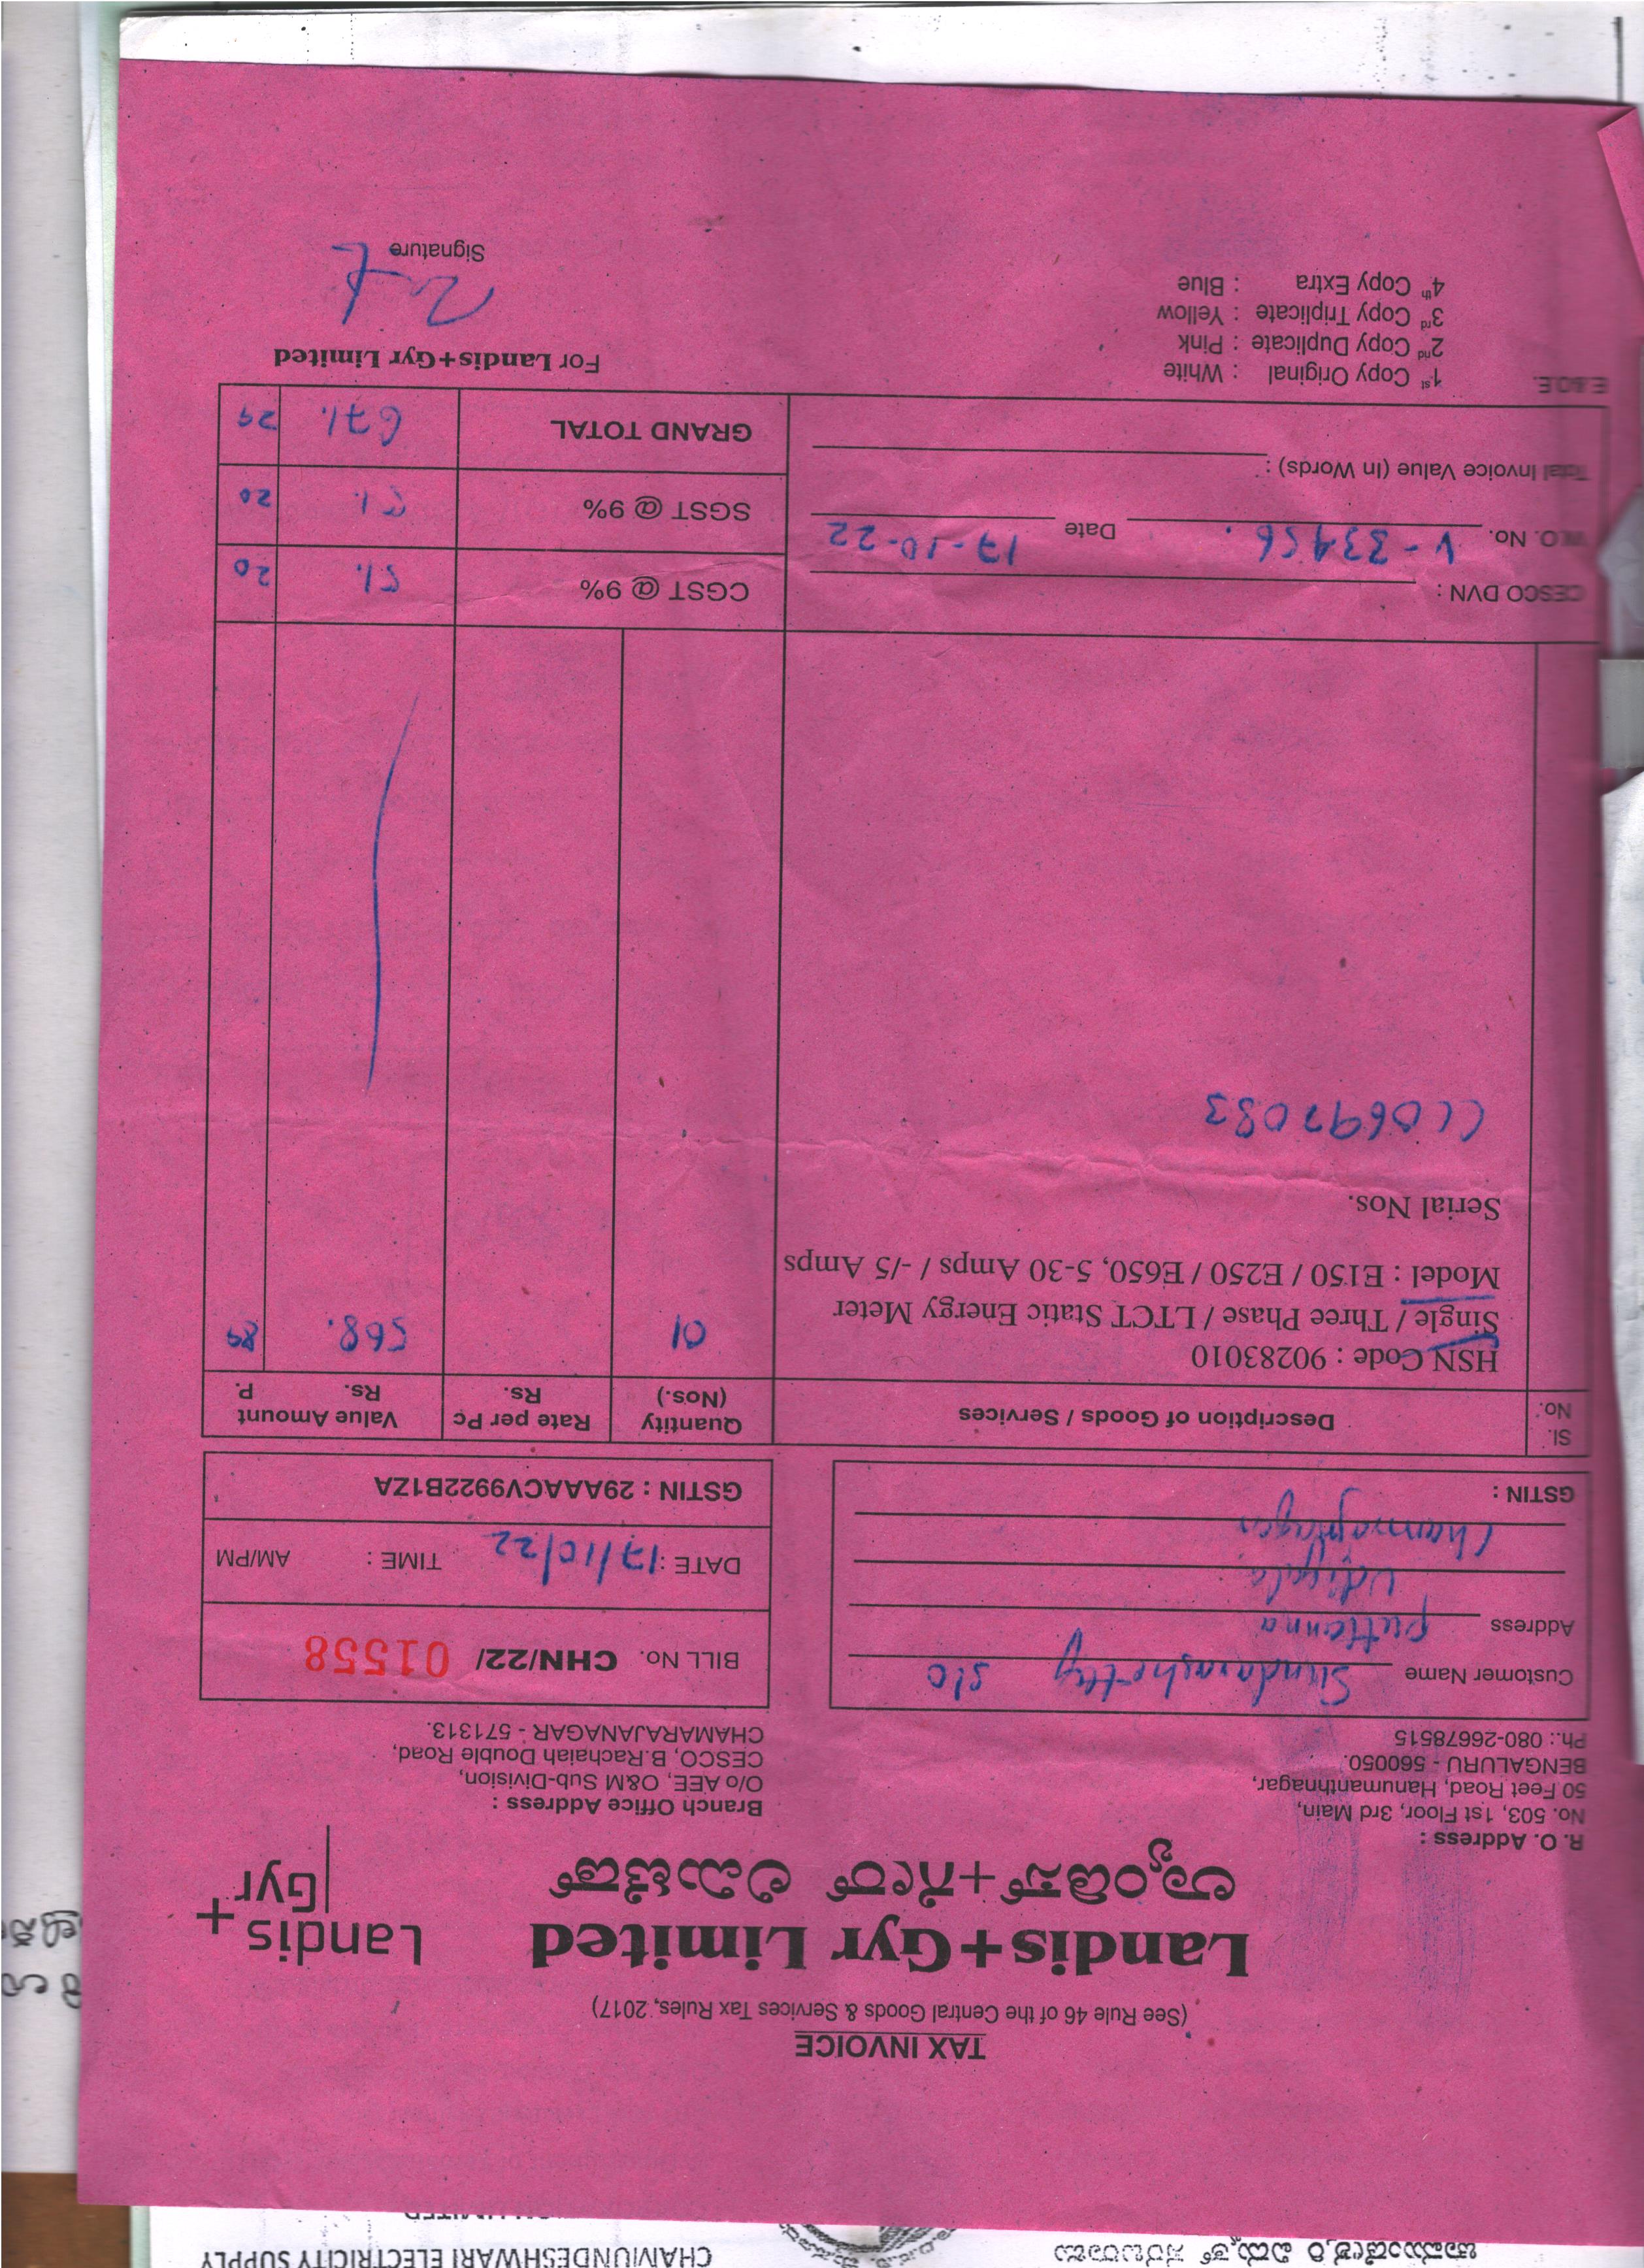 TAX INVOICE
(See Rule 46 of the Central Goods & Services Tax Rules, 2017)
Landis+Gyr Limited
ಲ್ಯಾಂಡಿಸ್+ಗೀರ್ ಲಿಮಿಟೆಡ್
Landis
Gyr+
R. O. Address :
No. 503, 1st Floor, 3rd Main,
50 Feet Road, Hanumanthnagar,
BENGALURU - 560050.
Ph.: 080-26678515
Branch Office Address :
O/o AEE, O&M Sub-Division,
CESCO, B.Rachaiah Double Road,
CHAMARAJANAGAR - 571313.
Customer Name Sundarashetty S/o
Address Puttanna
Udigala
GSTIN :
BILL No. CHN/22/ 01558
DATE : 17/10/22 TIME : AM/PM
GSTIN : 29AAACV9922B1ZA
Sl. No. Description of Goods / Services Quantity (Nos.) Rate per Pc Rs. Value Amount Rs. P.
HSN Code : 90283010
Single / Three Phase / LTCT Static Energy Meter 01 568. 89
Model : E150 / E250 / E650, 5-30 Amps / -/5 Amps
Serial Nos.
CC0697083
CESCO DVN : CGST @ 9% 51. 20
W.O. No. V-33456 Date 17-10-22 SGST @ 9% 51. 20
Total Invoice Value (In Words) : GRAND TOTAL 671. 29
E.&O.E.
1st Copy Original : White
2nd Copy Duplicate : Pink
3rd Copy Triplicate : Yellow
4th Copy Extra : Blue
For Landis+Gyr Limited
Signature
CHAMUNDESHWARI ELECTRICITY SUPPLY